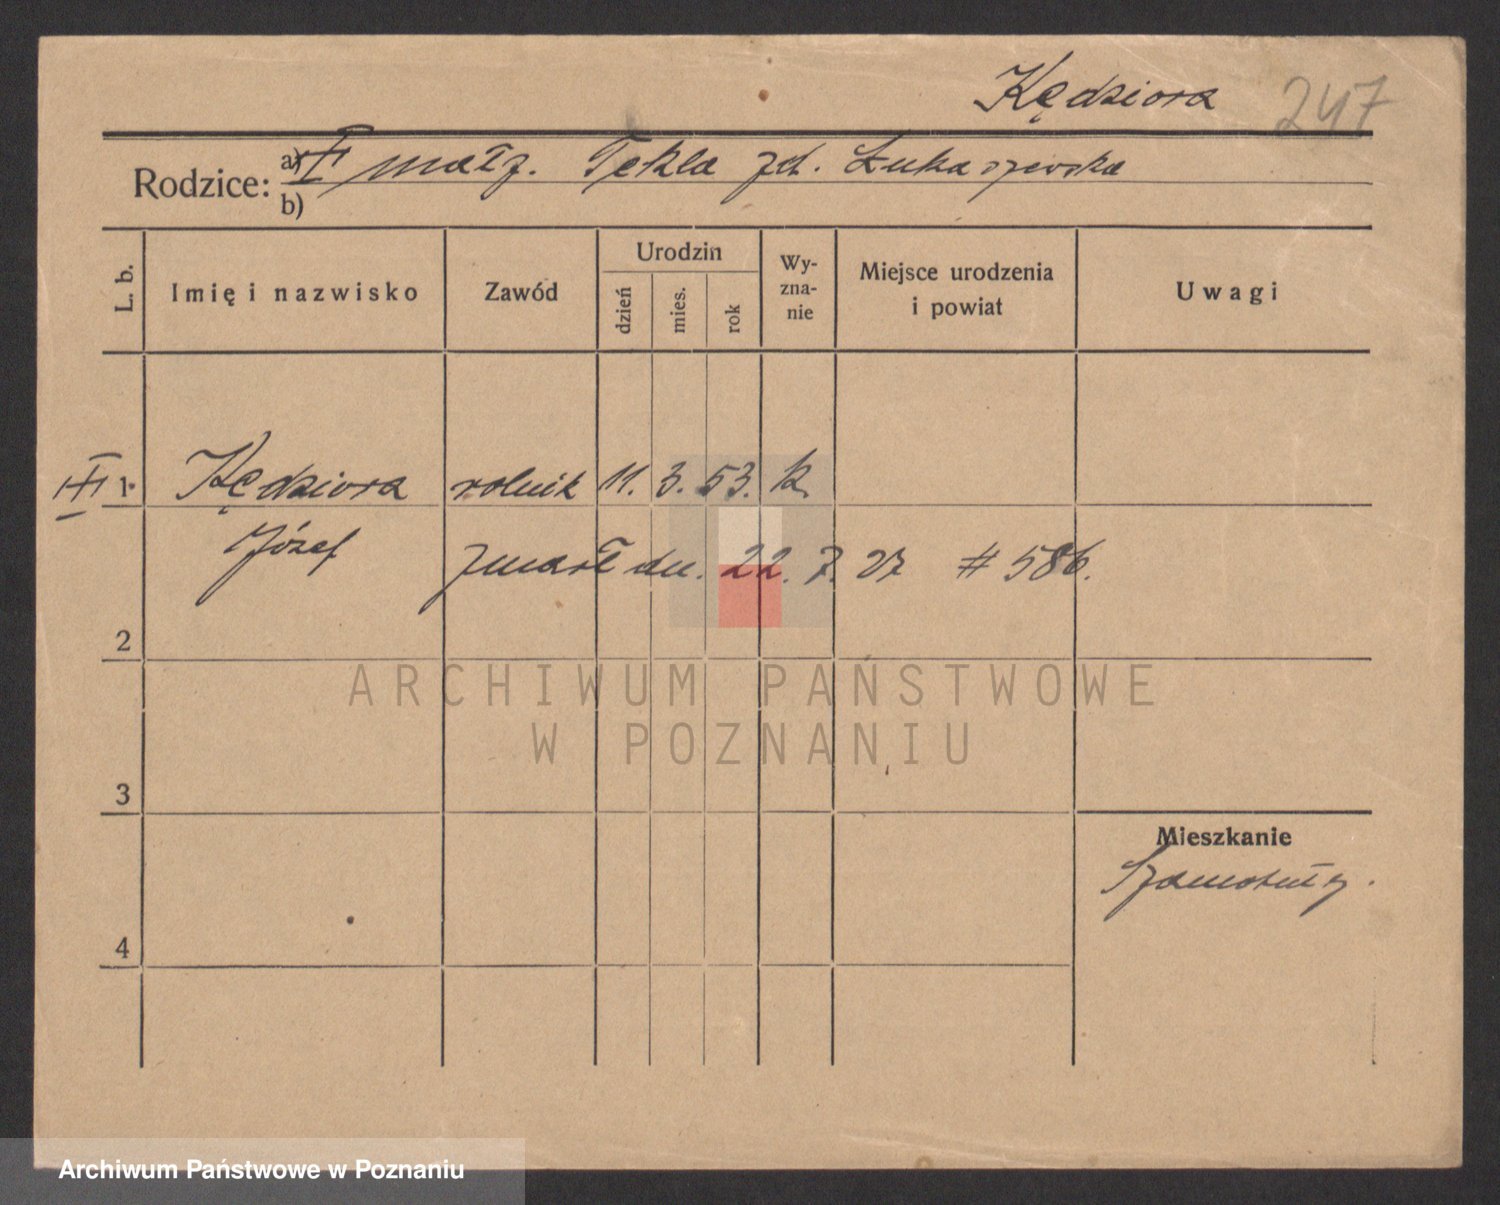 Kędziora 247
Rodzice: a) I małz. Tekla zd. Łukaszewska
b)
L. b.
Imię i nazwisko
Zawód
Urodzin
dzień
mies.
rok
Wy-
zna-
nie
Miejsce urodzenia
i powiat
Uwagi
1 Kędziora rolnik 11. 3. 53. k.
Józef zmarł dn. 22. 7. 27 # 586.
2
ARCHIWUM PAŃSTWOWE
W POZNANIU
3
Mieszkanie
Szamotuły.
4
Archiwum Państwowe w Poznaniu